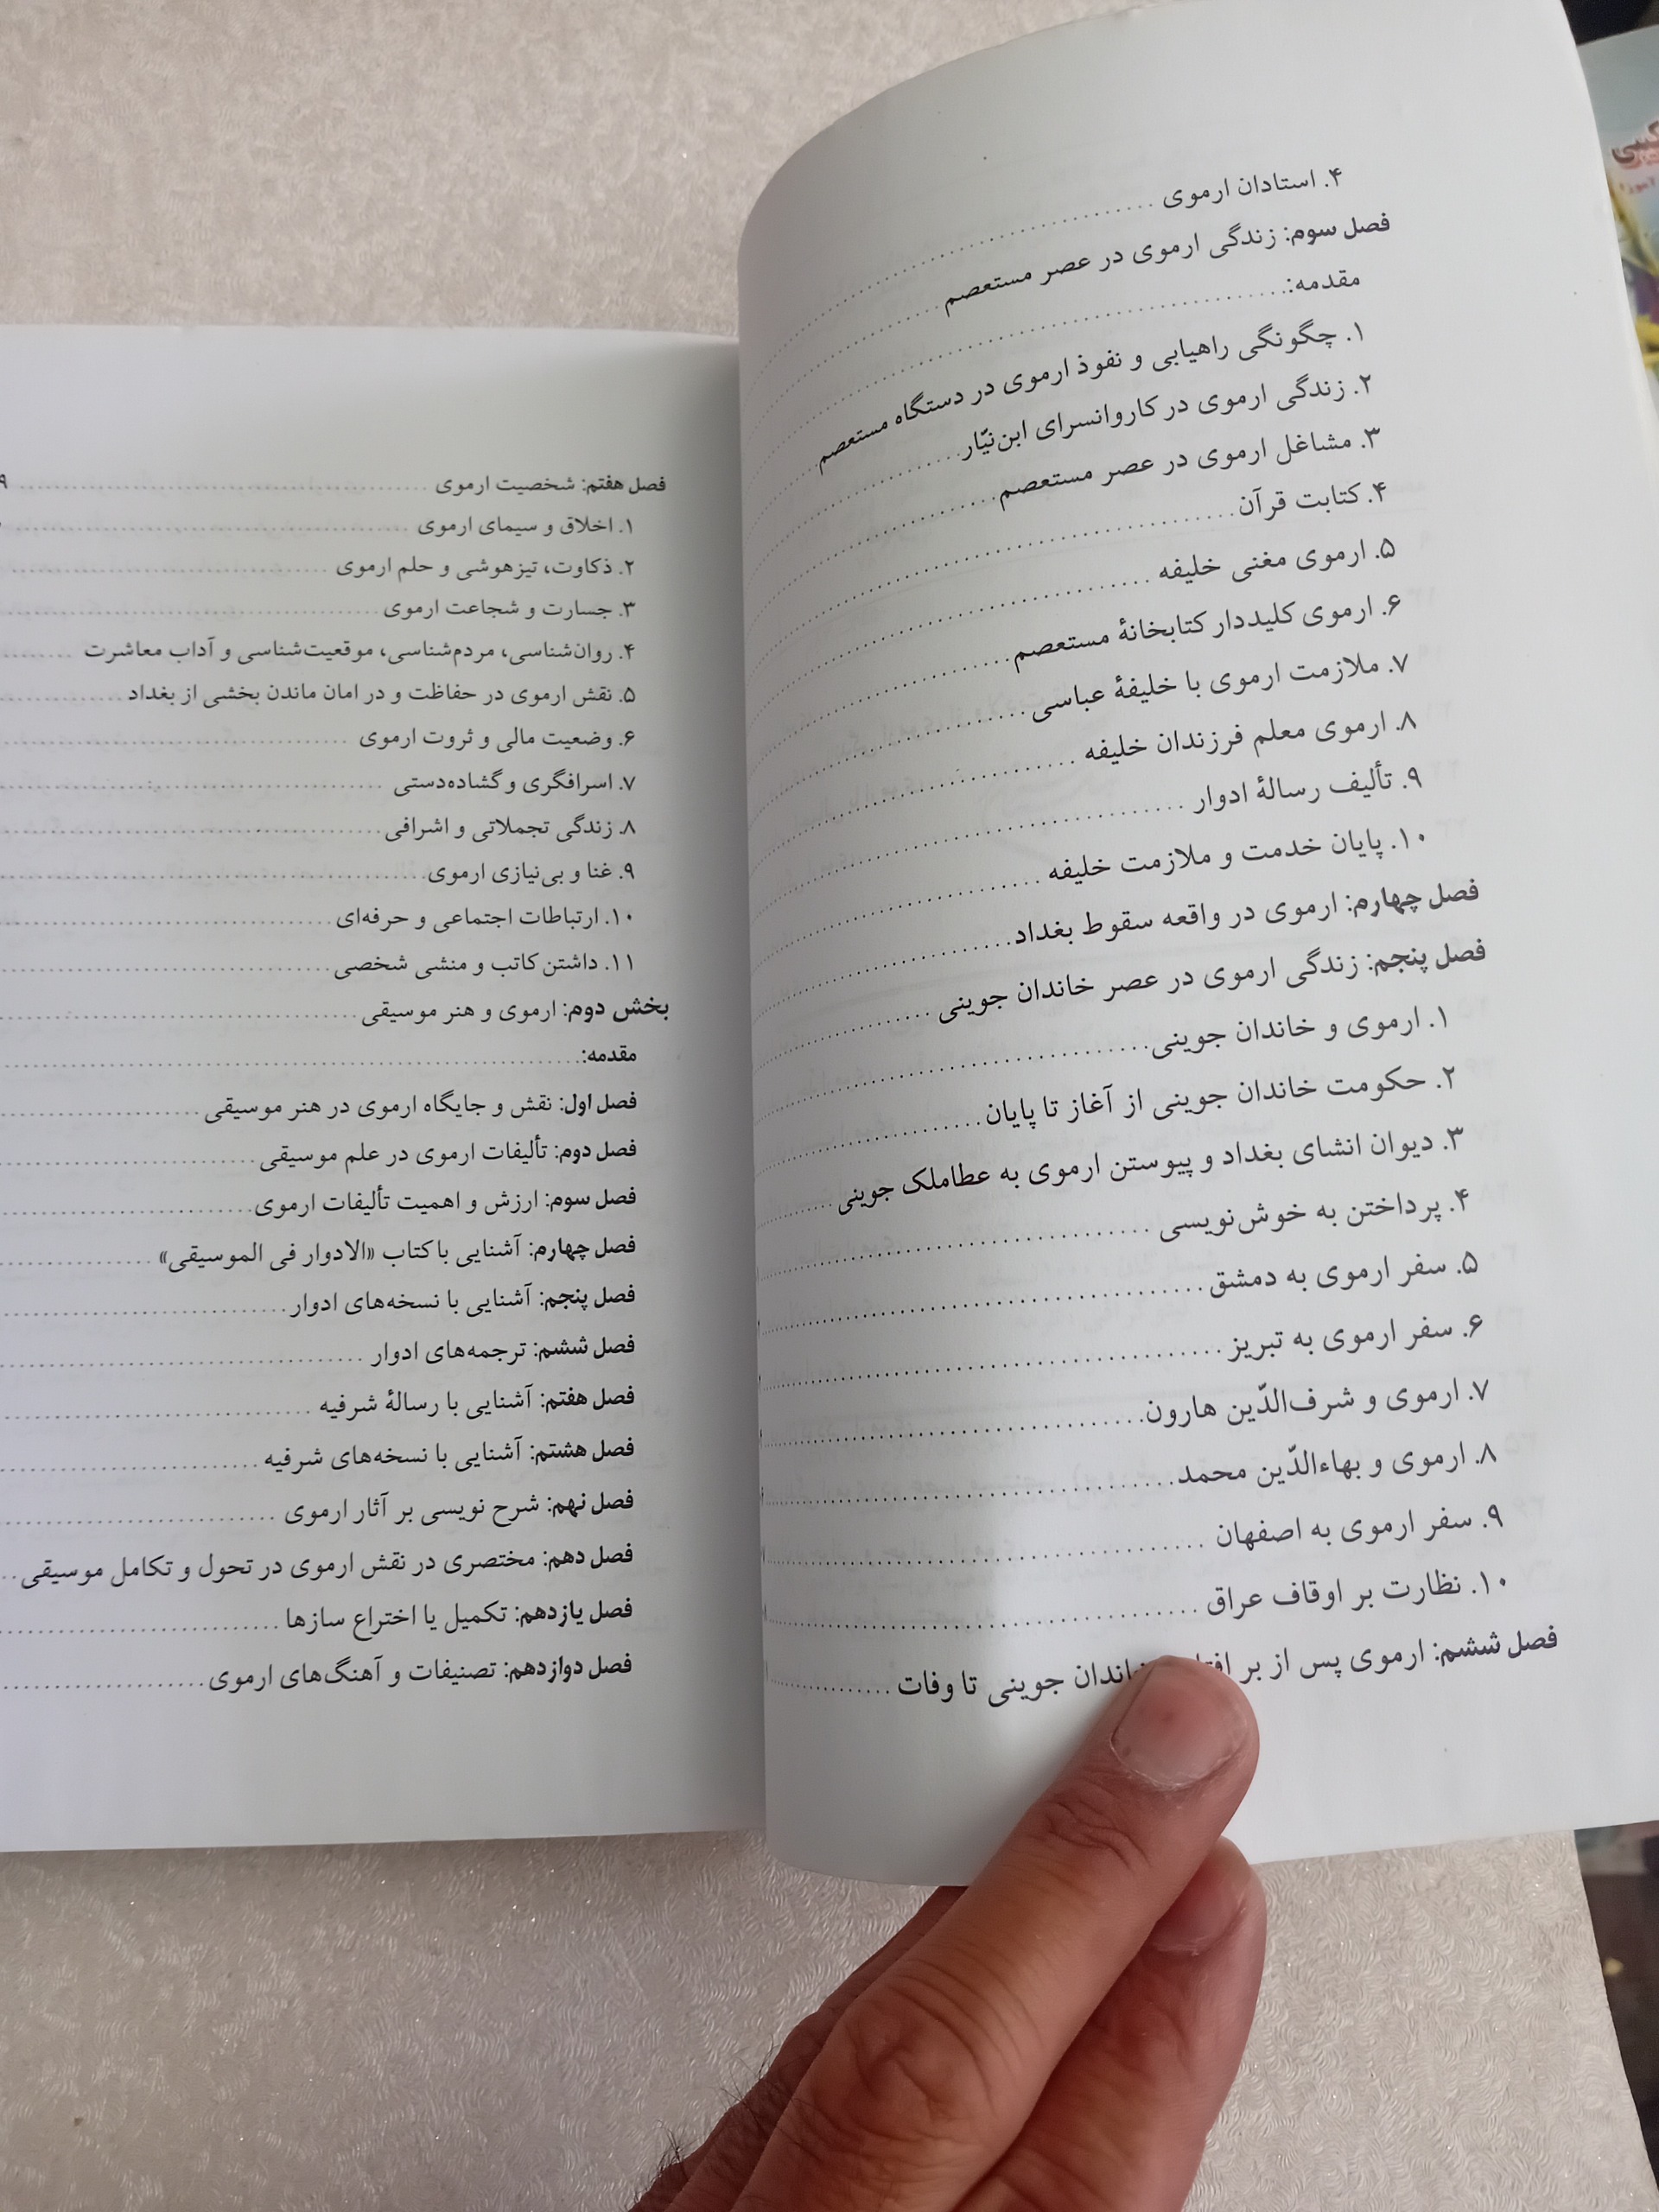 ۴. استادان ارموی
فصل سوم: زندگی ارموی در عصر مستعصم
مقدمه:
۱. چگونگی راهیابی و نفوذ ارموی در دستگاه مستعصم
۲. زندگی ارموی در کاروانسرای ابن‌نیّار
۳. مشاغل ارموی در عصر مستعصم
۴. کتابت قرآن
۵. ارموی مغنی خلیفه
۶. ارموی کلیددار کتابخانهٔ مستعصم
۷. ملازمت ارموی با خلیفهٔ عباسی
۸. ارموی معلم فرزندان خلیفه
۹. تألیف رسالهٔ ادوار
۱۰. پایان خدمت و ملازمت خلیفه
فصل چهارم: ارموی در واقعه سقوط بغداد
فصل پنجم: زندگی ارموی در عصر خاندان جوینی
۱. ارموی و خاندان جوینی
۲. حکومت خاندان جوینی از آغاز تا پایان
۳. دیوان انشای بغداد و پیوستن ارموی به عطاملک جوینی
۴. پرداختن به خوش‌نویسی
۵. سفر ارموی به دمشق
۶. سفر ارموی به تبریز
۷. ارموی و شرف‌الدّین هارون
۸. ارموی و بهاءالدّین محمد
۹. سفر ارموی به اصفهان
۱۰. نظارت بر اوقاف عراق
فصل ششم: ارموی پس از بر جوینی تا وفات
فصل هفتم: شخصیت ارموی
۱. اخلاق و سیمای ارموی
۲. ذکاوت، تیزهوشی و حلم ارموی
۳. جسارت و شجاعت ارموی
۴. روان‌شناسی، مردم‌شناسی، موقعیت‌شناسی و آداب معاشرت
۵. نقش ارموی در حفاظت و در امان ماندن بخشی از بغداد
۶. وضعیت مالی و ثروت ارموی
۷. اسرافگری و گشاده‌دستی
۸. زندگی تجملاتی و اشرافی
۹. غنا و بی‌نیازی ارموی
۱۰. ارتباطات اجتماعی و حرفه‌ای
۱۱. داشتن کاتب و منشی شخصی
بخش دوم: ارموی و هنر موسیقی
مقدمه:
فصل اول: نقش و جایگاه ارموی در هنر موسیقی
فصل دوم: تألیفات ارموی در علم موسیقی
فصل سوم: ارزش و اهمیت تألیفات ارموی
فصل چهارم: آشنایی با کتاب «الادوار فی الموسیقی»
فصل پنجم: آشنایی با نسخه‌های ادوار
فصل ششم: ترجمه‌های ادوار
فصل هفتم: آشنایی با رسالهٔ شرفیه
فصل هشتم: آشنایی با نسخه‌های شرفیه
فصل نهم: شرح نویسی بر آثار ارموی
فصل دهم: مختصری در نقش ارموی در تحول و تکامل موسیقی
فصل یازدهم: تکمیل یا اختراع سازها
فصل دوازدهم: تصنیفات و آهنگ‌های ارموی